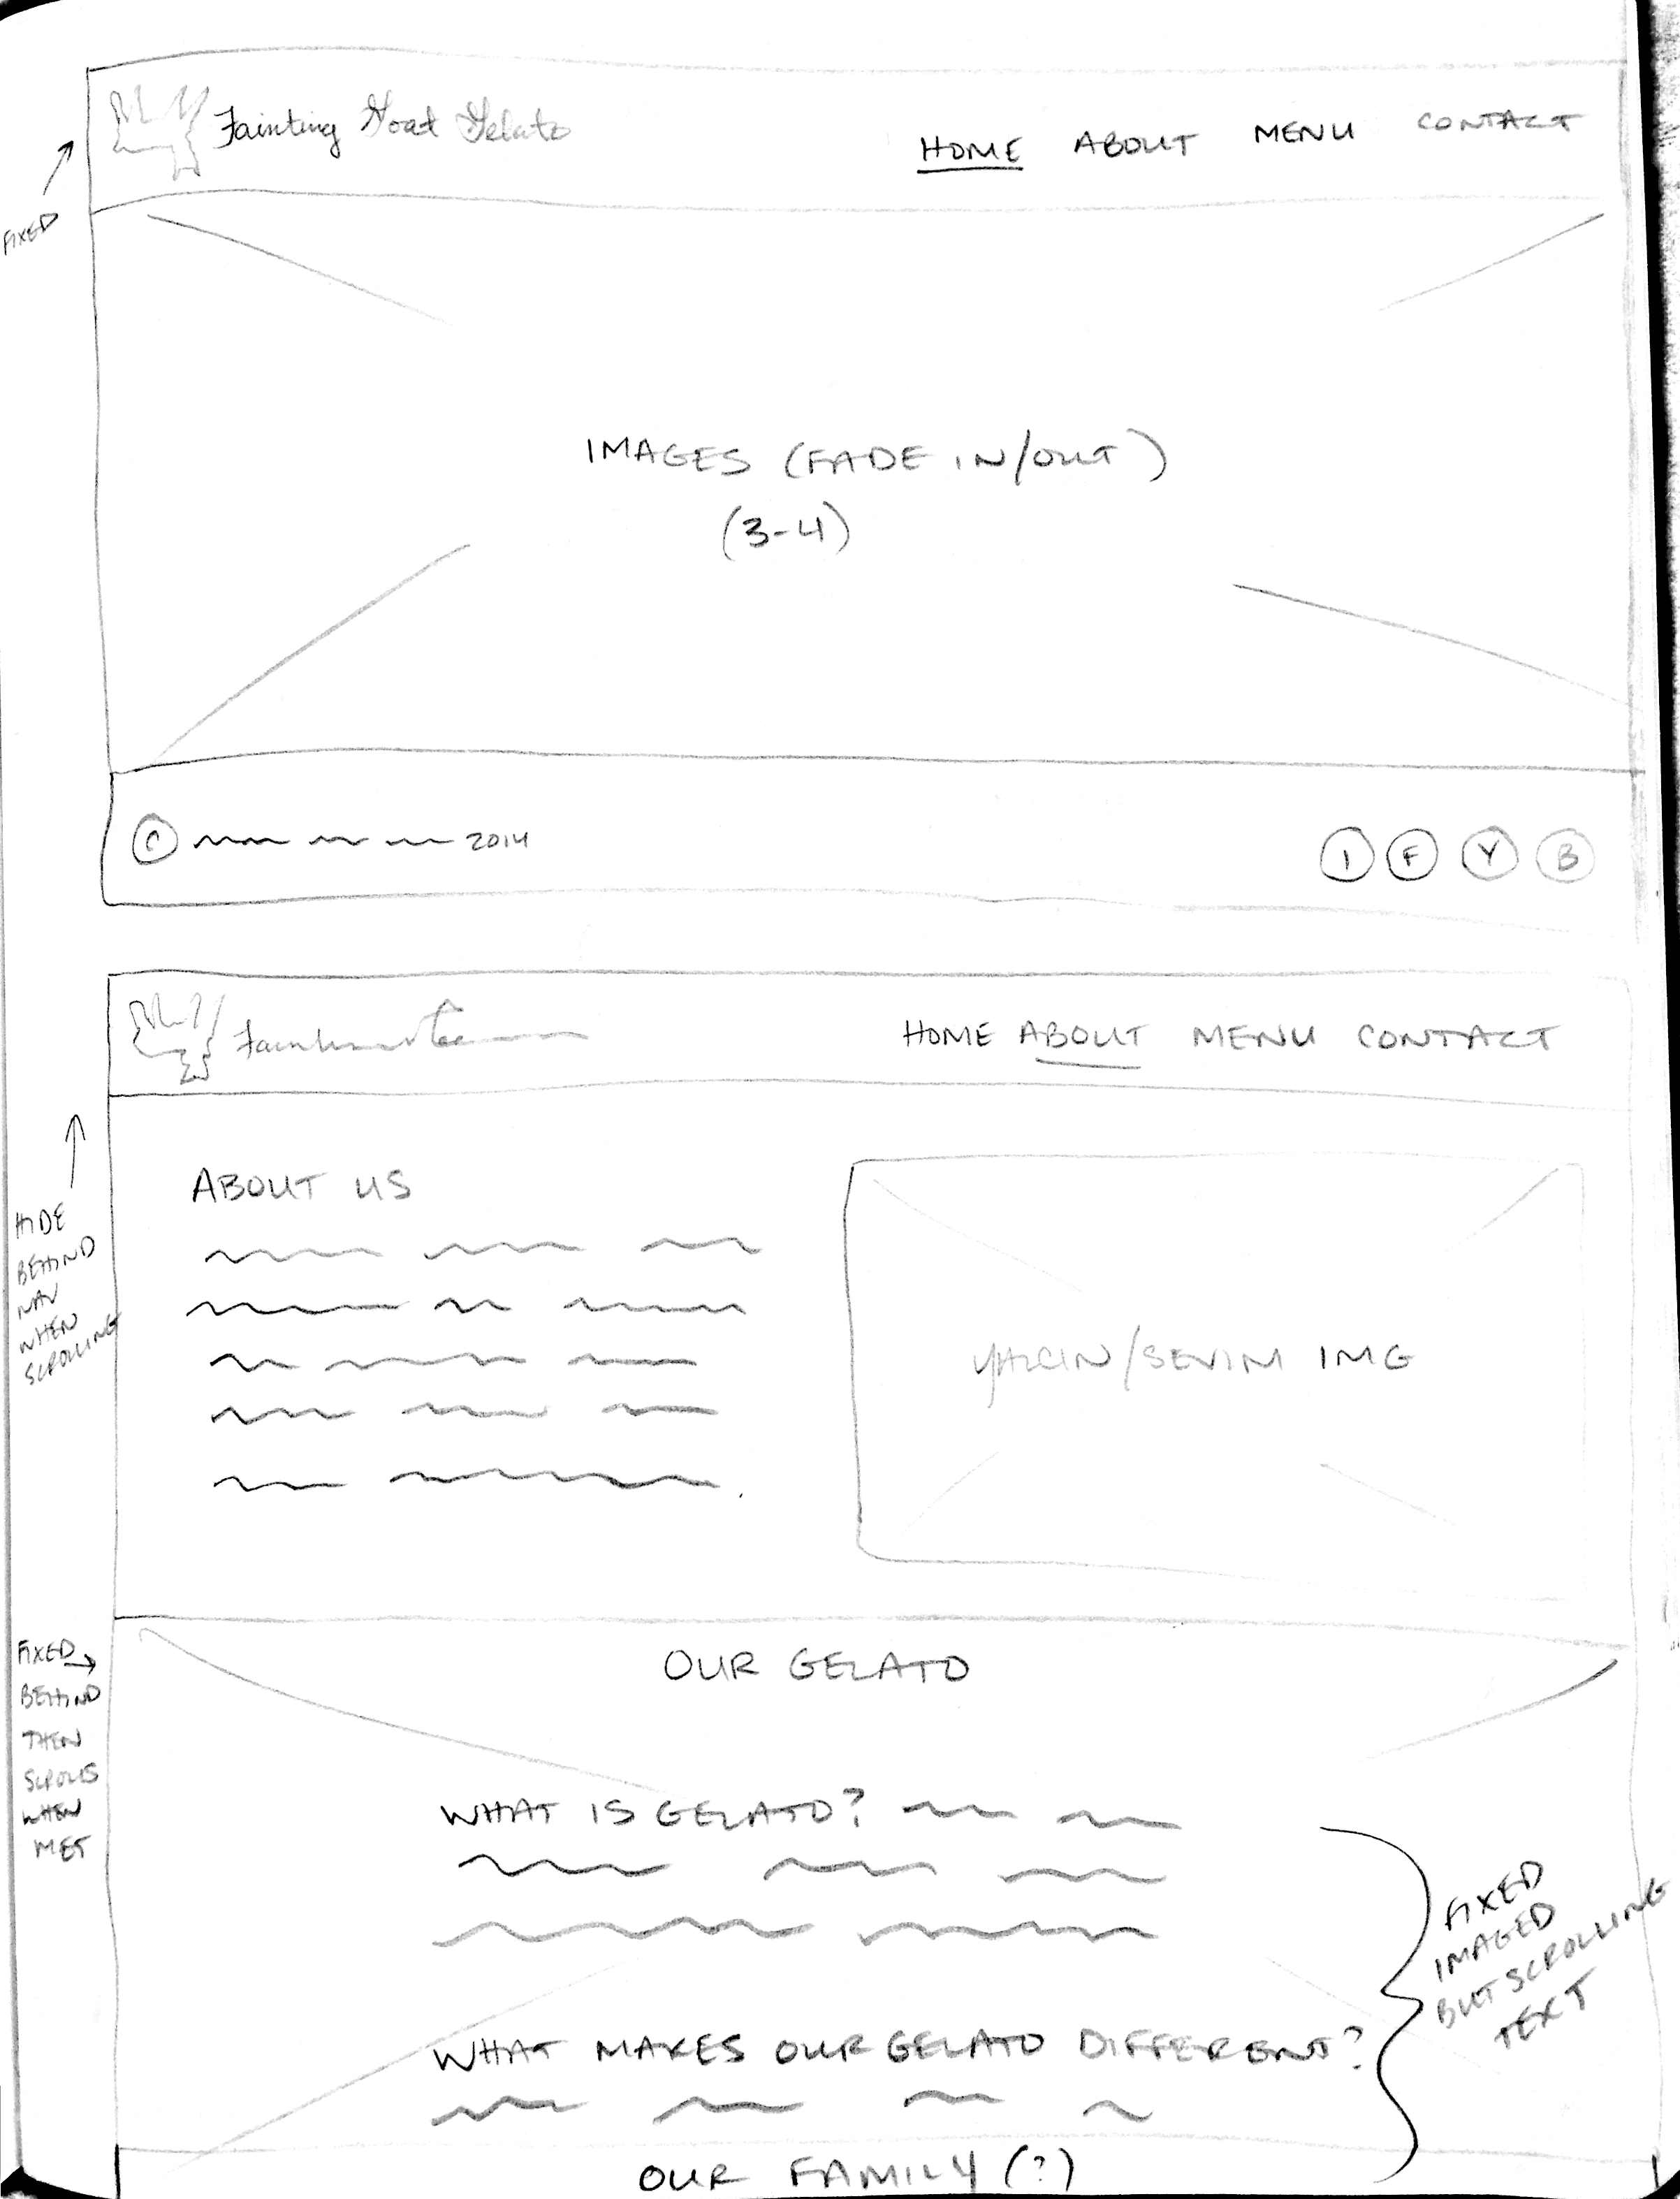 Fainting Goat Gelato
HOME ABOUT MENU CONTACT
FIXED
IMAGES (FADE IN/OUT)
(3-4)
© 2014
I F Y B
HOME ABOUT MENU CONTACT
HIDE
BEHIND
NAV
WHEN
SCROLLING
ABOUT US
YALCIN/SEVIM IMG
FIXED
BEHIND
THEN
SCROLLS
WHEN
MET
OUR GELATO
WHAT IS GELATO?
WHAT MAKES OUR GELATO DIFFERENT?
FIXED
IMAGED
BUT SCROLLING
TEXT
OUR FAMILY (?)